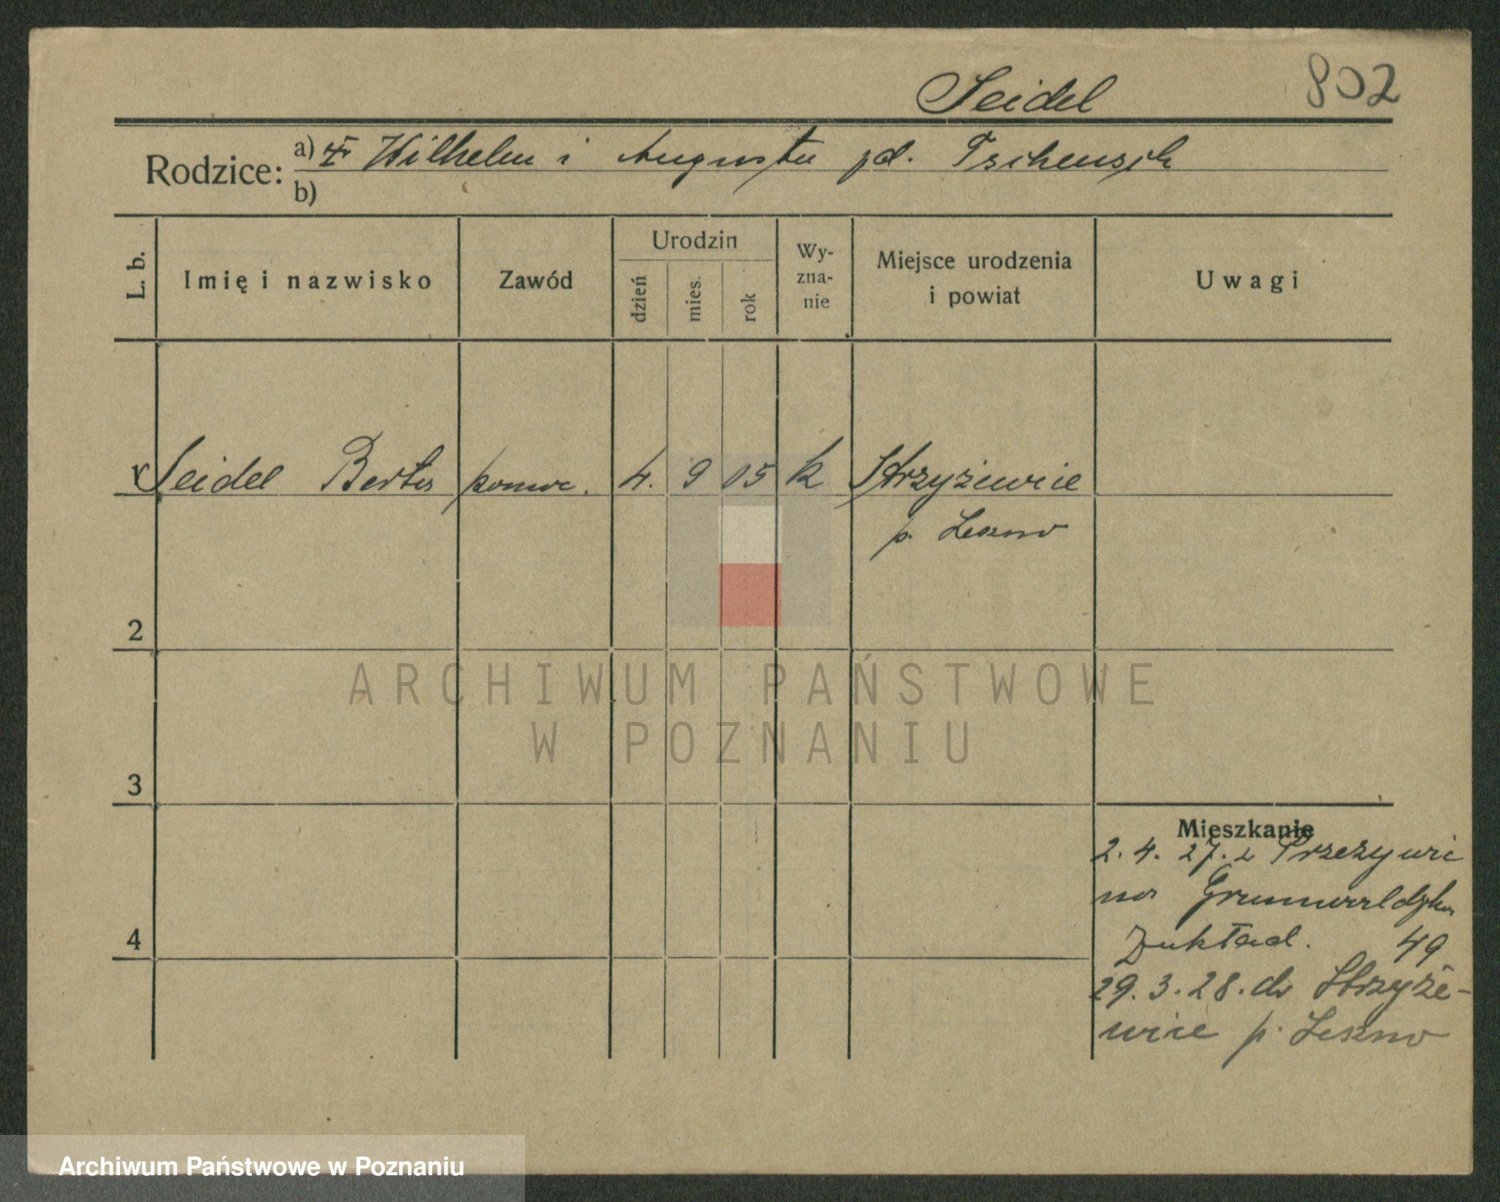 Seidel 802
Rodzice: a) Wilhelm i Augusta
b)
L. b. Imię i nazwisko Zawód Urodzin dzień mies. rok Wy-zna-nie Miejsce urodzenia i powiat Uwagi
Seidel Berta 4. 9 05 k Strzyżewice
p. Leszno
2
3
4
Mieszkanie
2. 4. 27. z
na Grunwaldzka
49
29. 3. 28. do Strzyże-
wice p. Leszno
ARCHIWUM PAŃSTWOWE
W POZNANIU
Archiwum Państwowe w Poznaniu